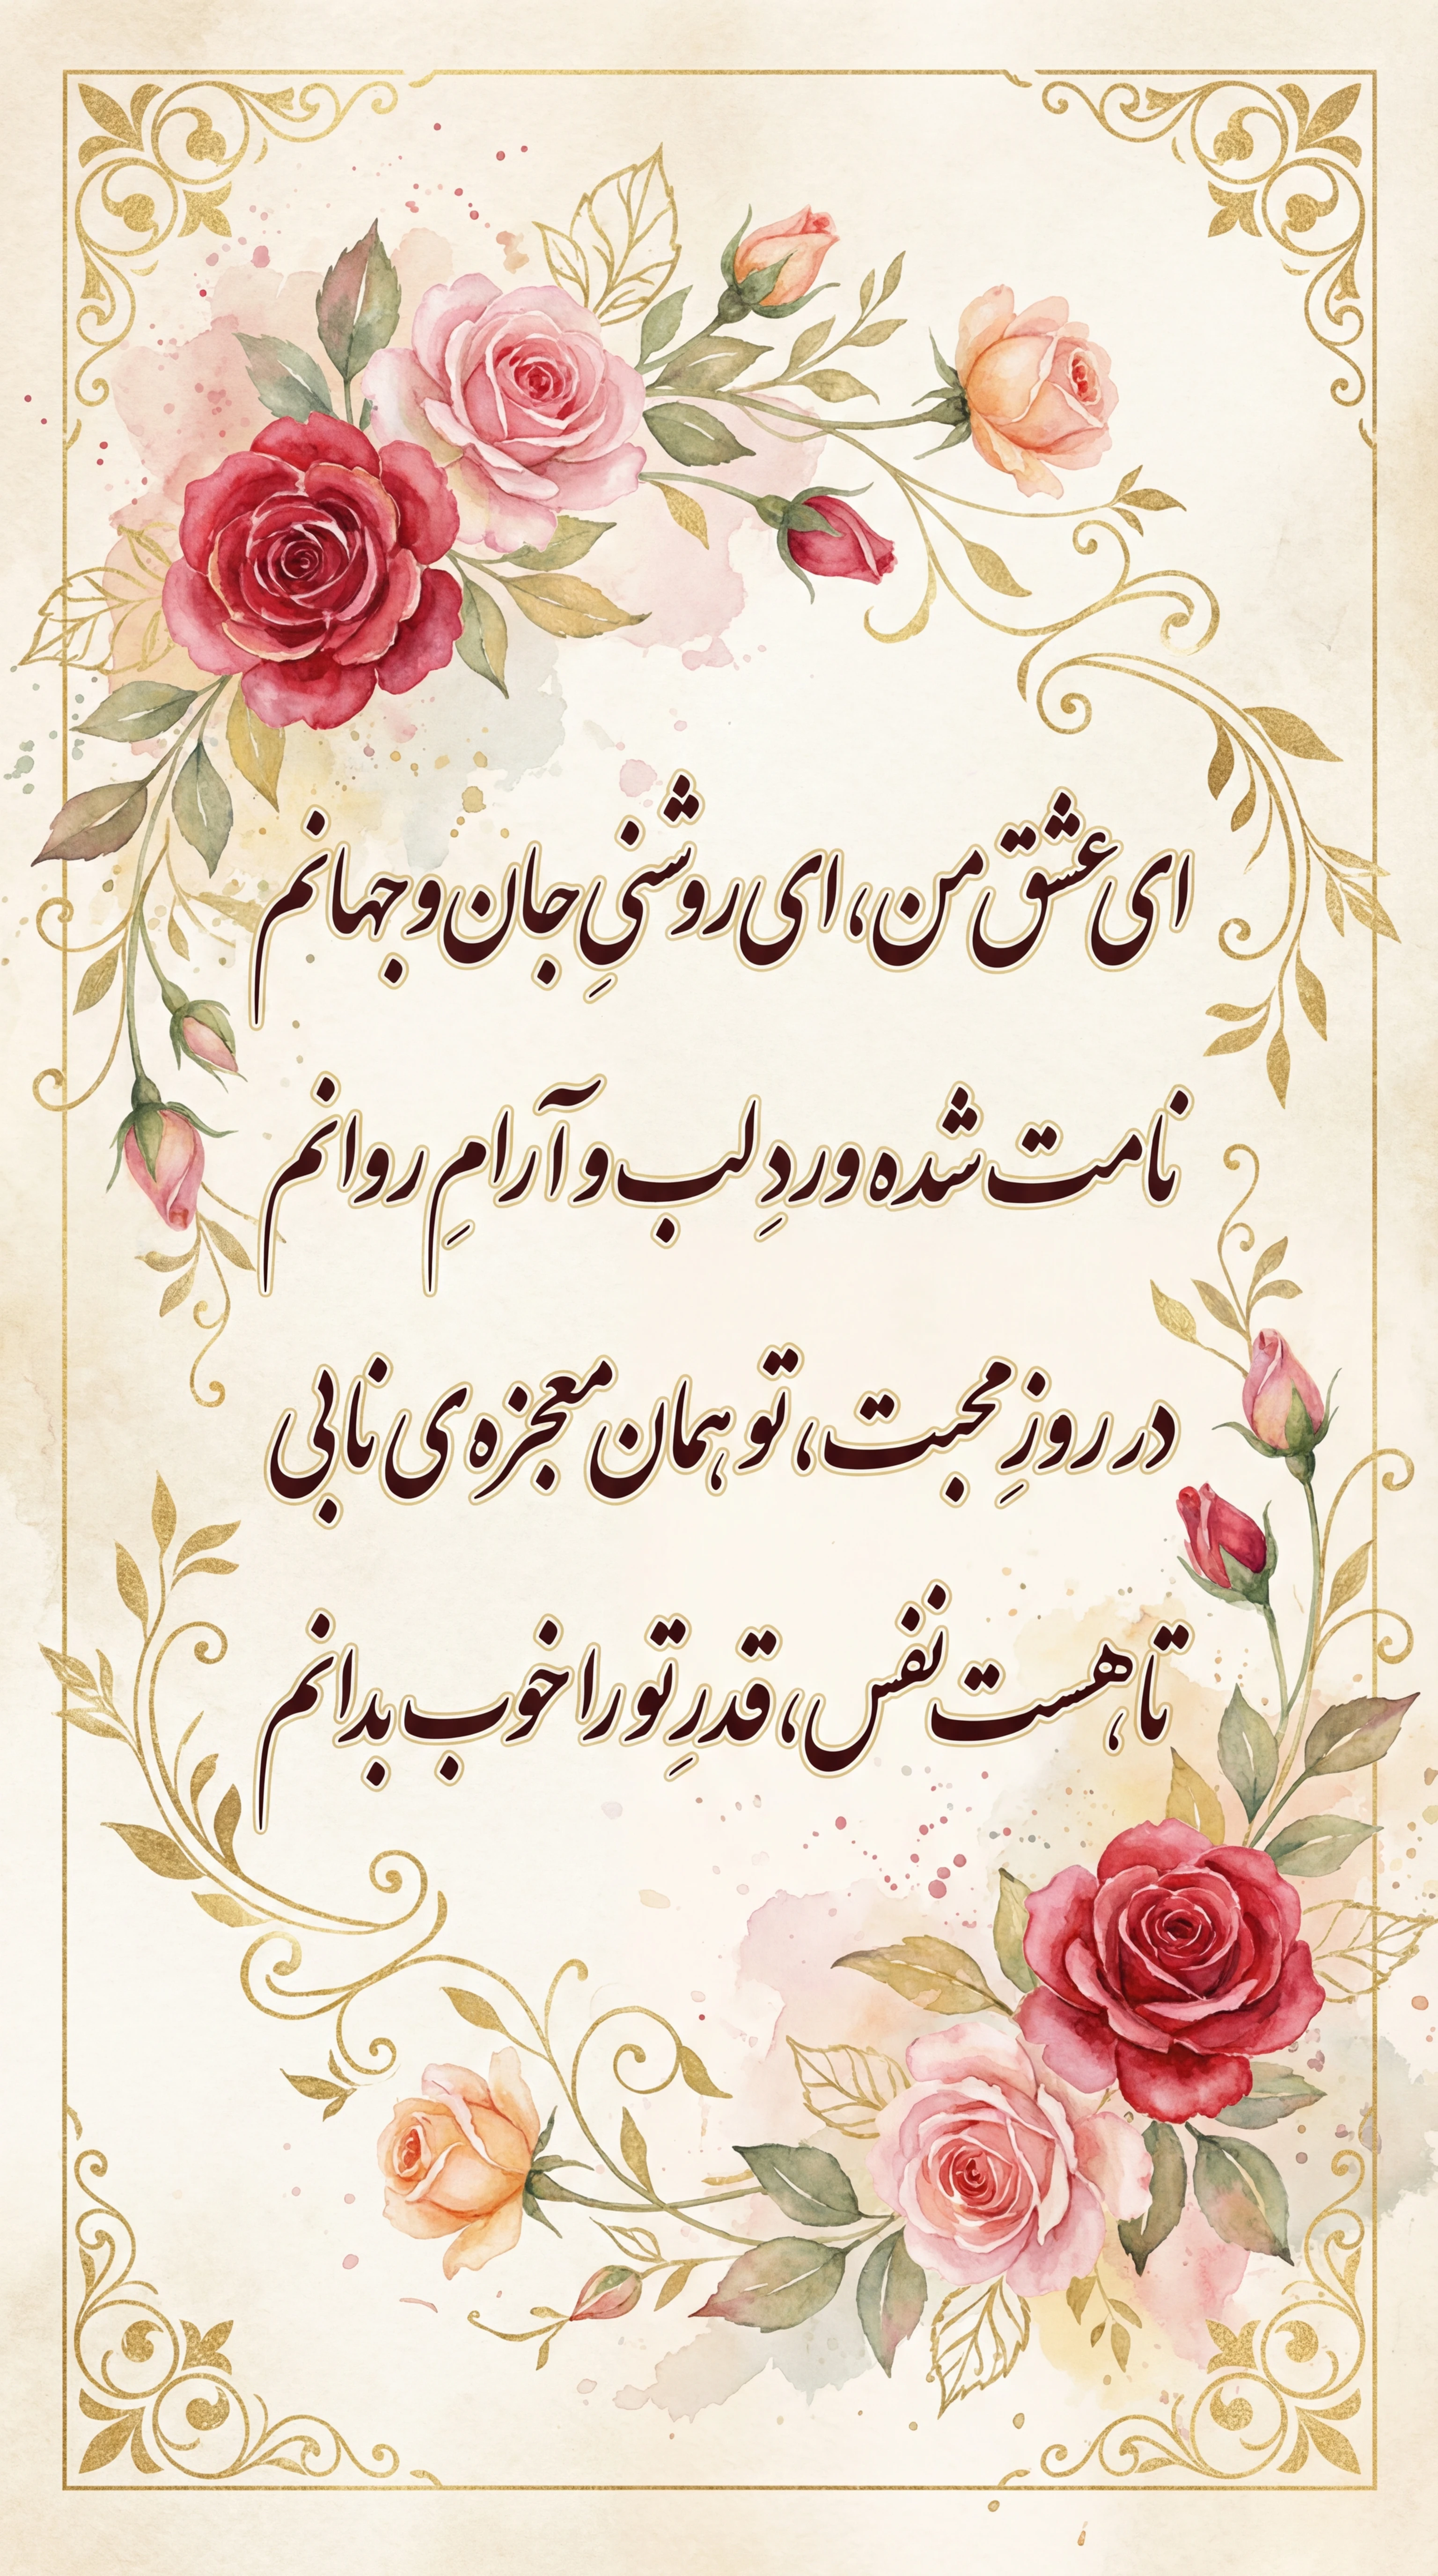 ای عشق من، ای روشنیِ جان و جهانم
نامت شده وردِ لب و آرامِ روانم
در روزِ محبت، تو همان معجزه‌ی نابی
تا هست نفس، قدرِ تو را خوب بدانم